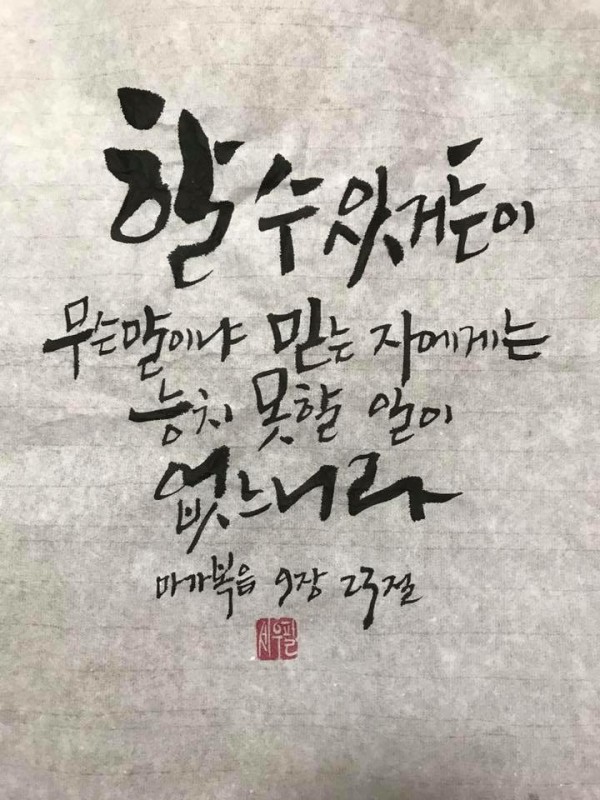 할 수 있거든이
무슨말이냐 믿는 자에게는
능치 못할 일이
없느니라
마가복음 9장 23절